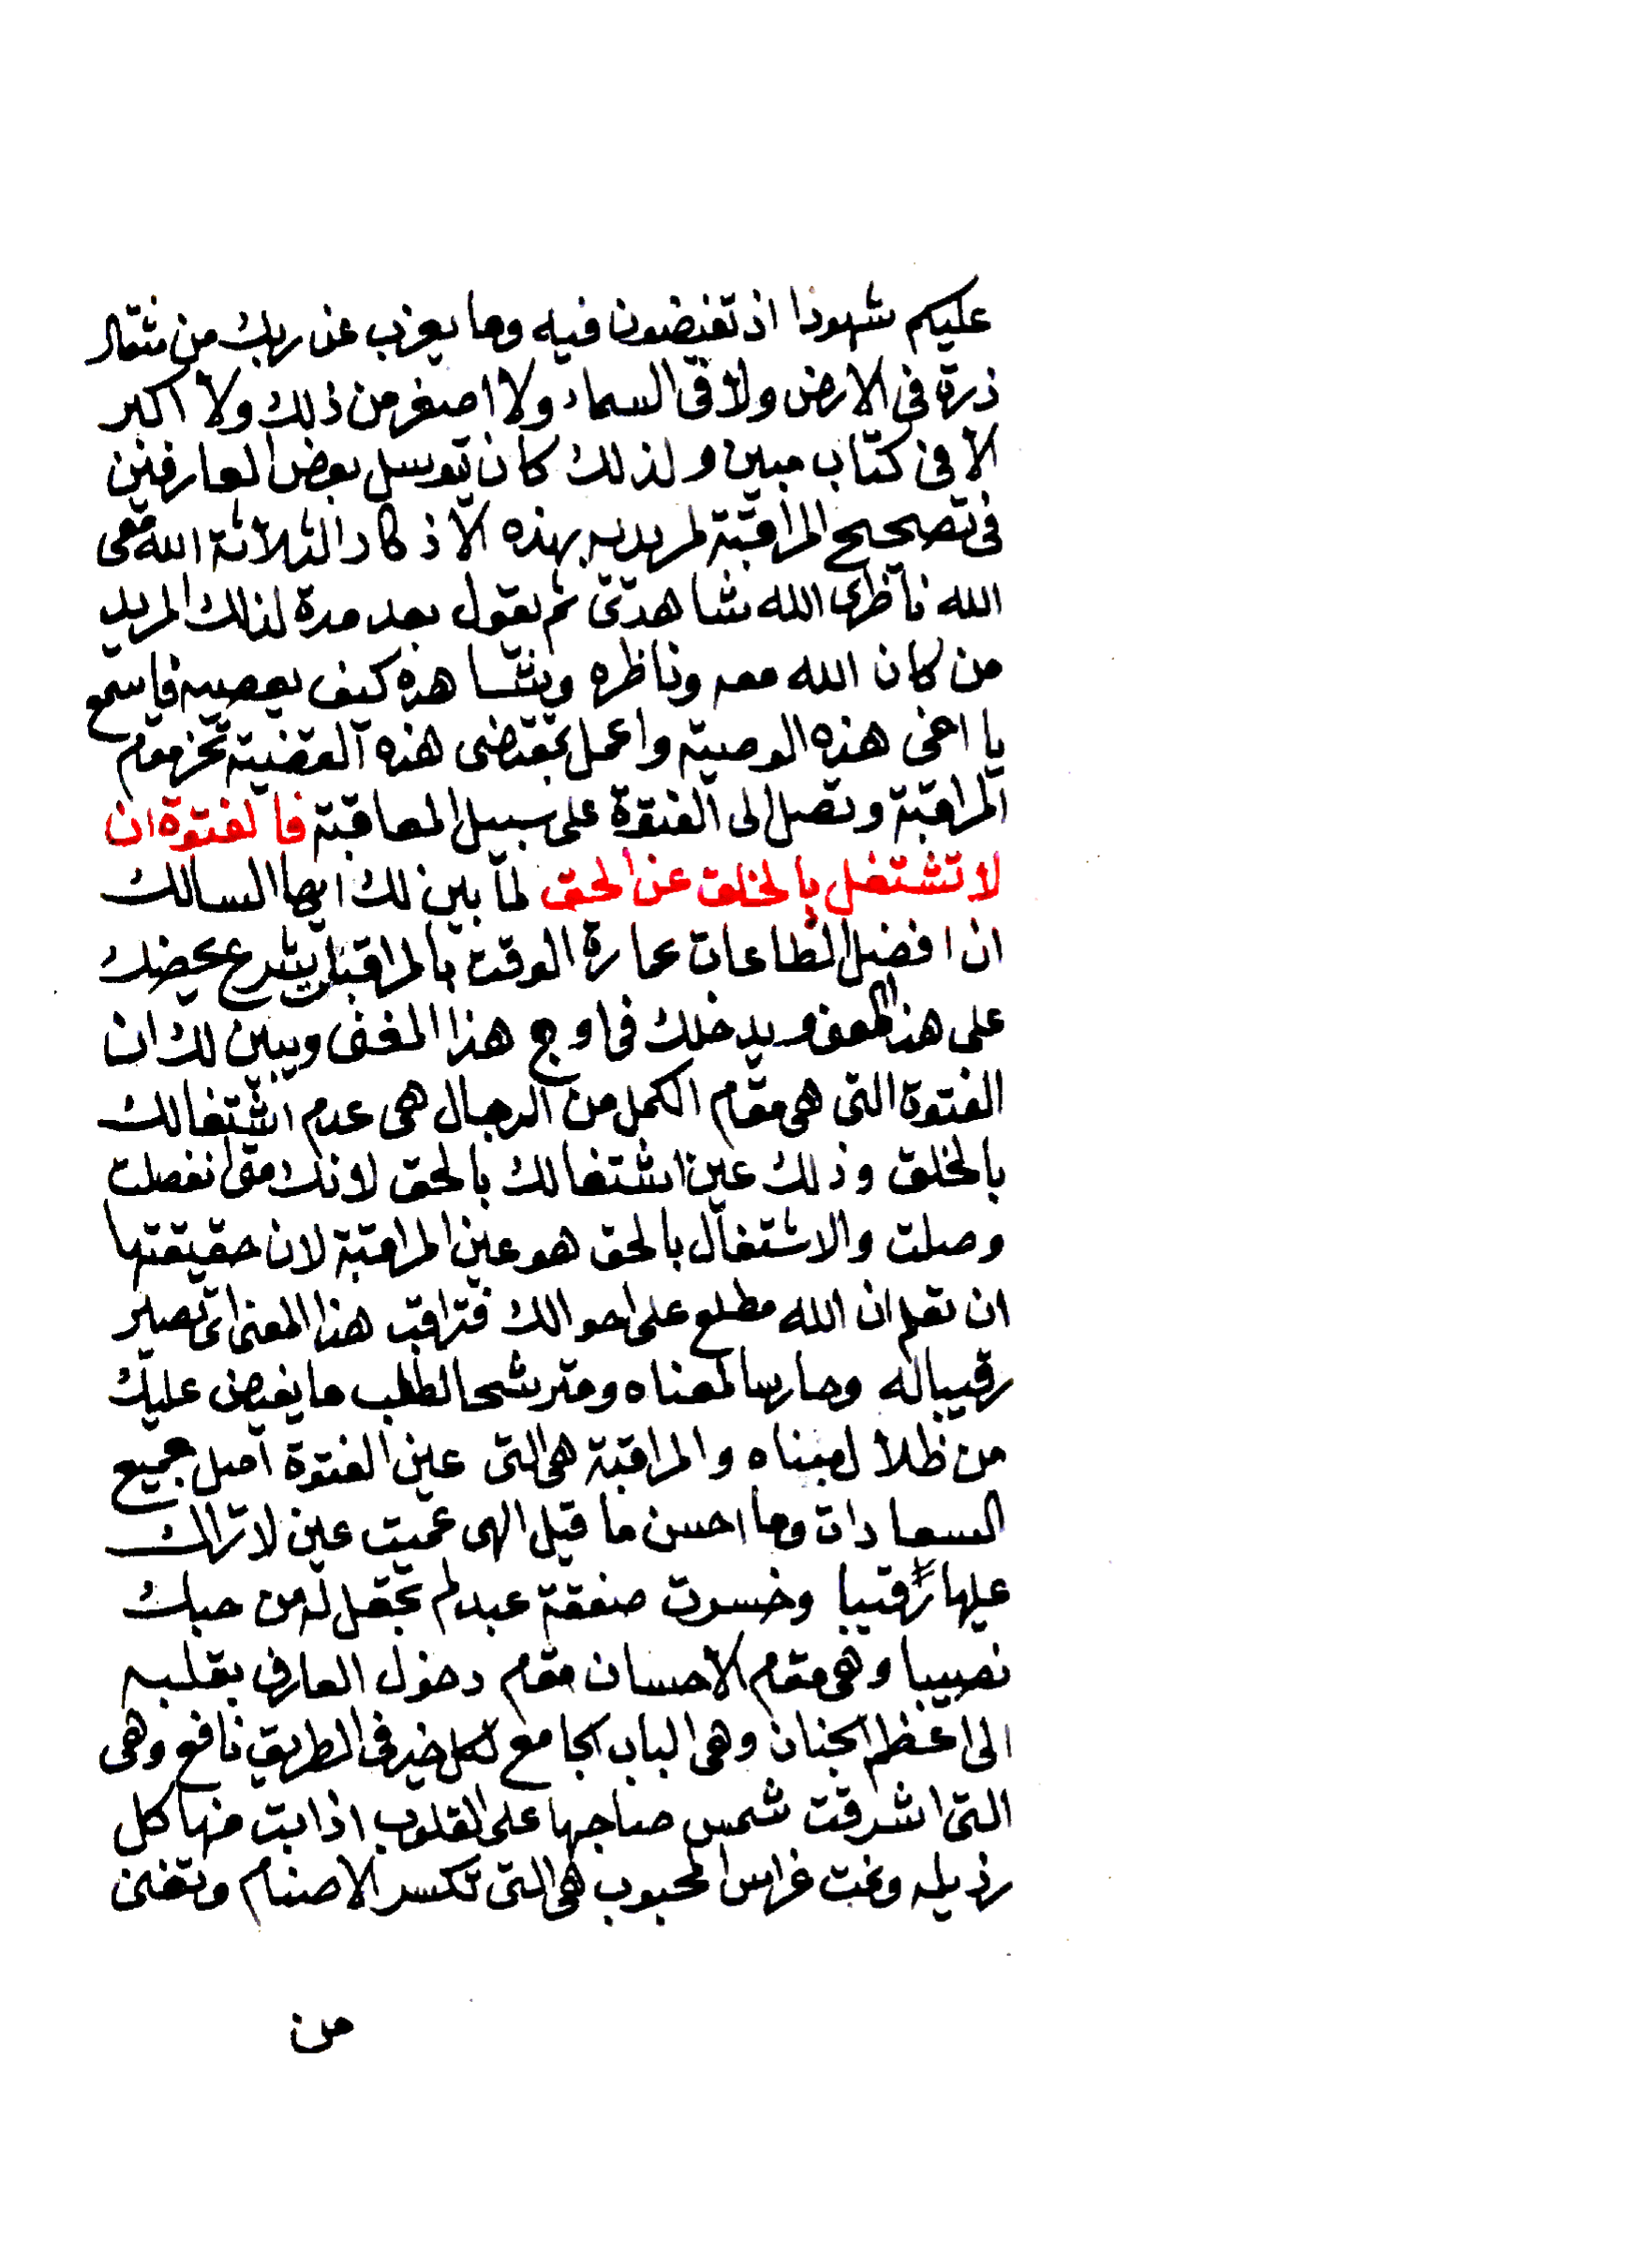 عليكم شهودا اذ تفيضون فيه وما يعزب عن ربك من مثقال
ذرة فى الارض ولا فى السماء ولا اصغر من ذلك ولا اكبر
الا فى كتاب مبين ولذلك كان توسل بعض العارفين
فى تصحيح المراقبة لمريديه بهذه الاذكار الثلاثة الله معى
الله ناظرى الله شاهدى ثم يقول بعد مدة لذلك المريد
من كان الله معه وناظره ويشاهده كيف يعصيه فاسمع
يا اخى هذه الوصية واعمل بمقتضى هذه القضية تحز مقام
المراقبة وتصل الى الفتوة على سبيل المعاقبة فالفتوة ان
لا تشتغل بالخلق عن الحق لما بين لك ايها السالك
ان افضل الطاعات عمارة الوقت بالمراقبة يحضك
على هذا ويدخلك فى اوج هذا المغنى ويبين لك ان
الفتوة التى هى مقام الكمل من الرجال هى عدم اشتغالك
بالخلق وذلك عين اشتغالك بالحق لانك متى انفصلت
وصلت والاشتغال بالحق هو عين المراقبة لان حقيقتها
ان تعلم ان الله مطلع على احوالك فتراقب هذا المعنى اى تصير
رقيبا له وحارسا لمعناه ومترشحا لطلب ما يفيض عليك
من ظلال مبناه والمراقبة هى التى عين الفتوة اصل جميع
السعادات وما احسن ما قيل الهى عميت عين لا تراك
عليها رقيبا وخسرت صفقة عبد لم تجعل له من حبك
نصيبا وهى مقام الاحسان مقام دخول العارف بقلبه
الى اعظم الجنان وهى الباب الجامع لكل خير فى الطريق نافع وهى
التى اشرقت شمس صباحها على القلوب اذابت منها كل
رذيله ونمت غراس المحبوب هى التى تكسر الاصنام وتغنى
من